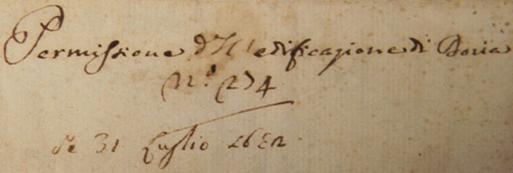 Permissione d'Hedificazione di Boria
N.º 274
de 31 Luglio 1682